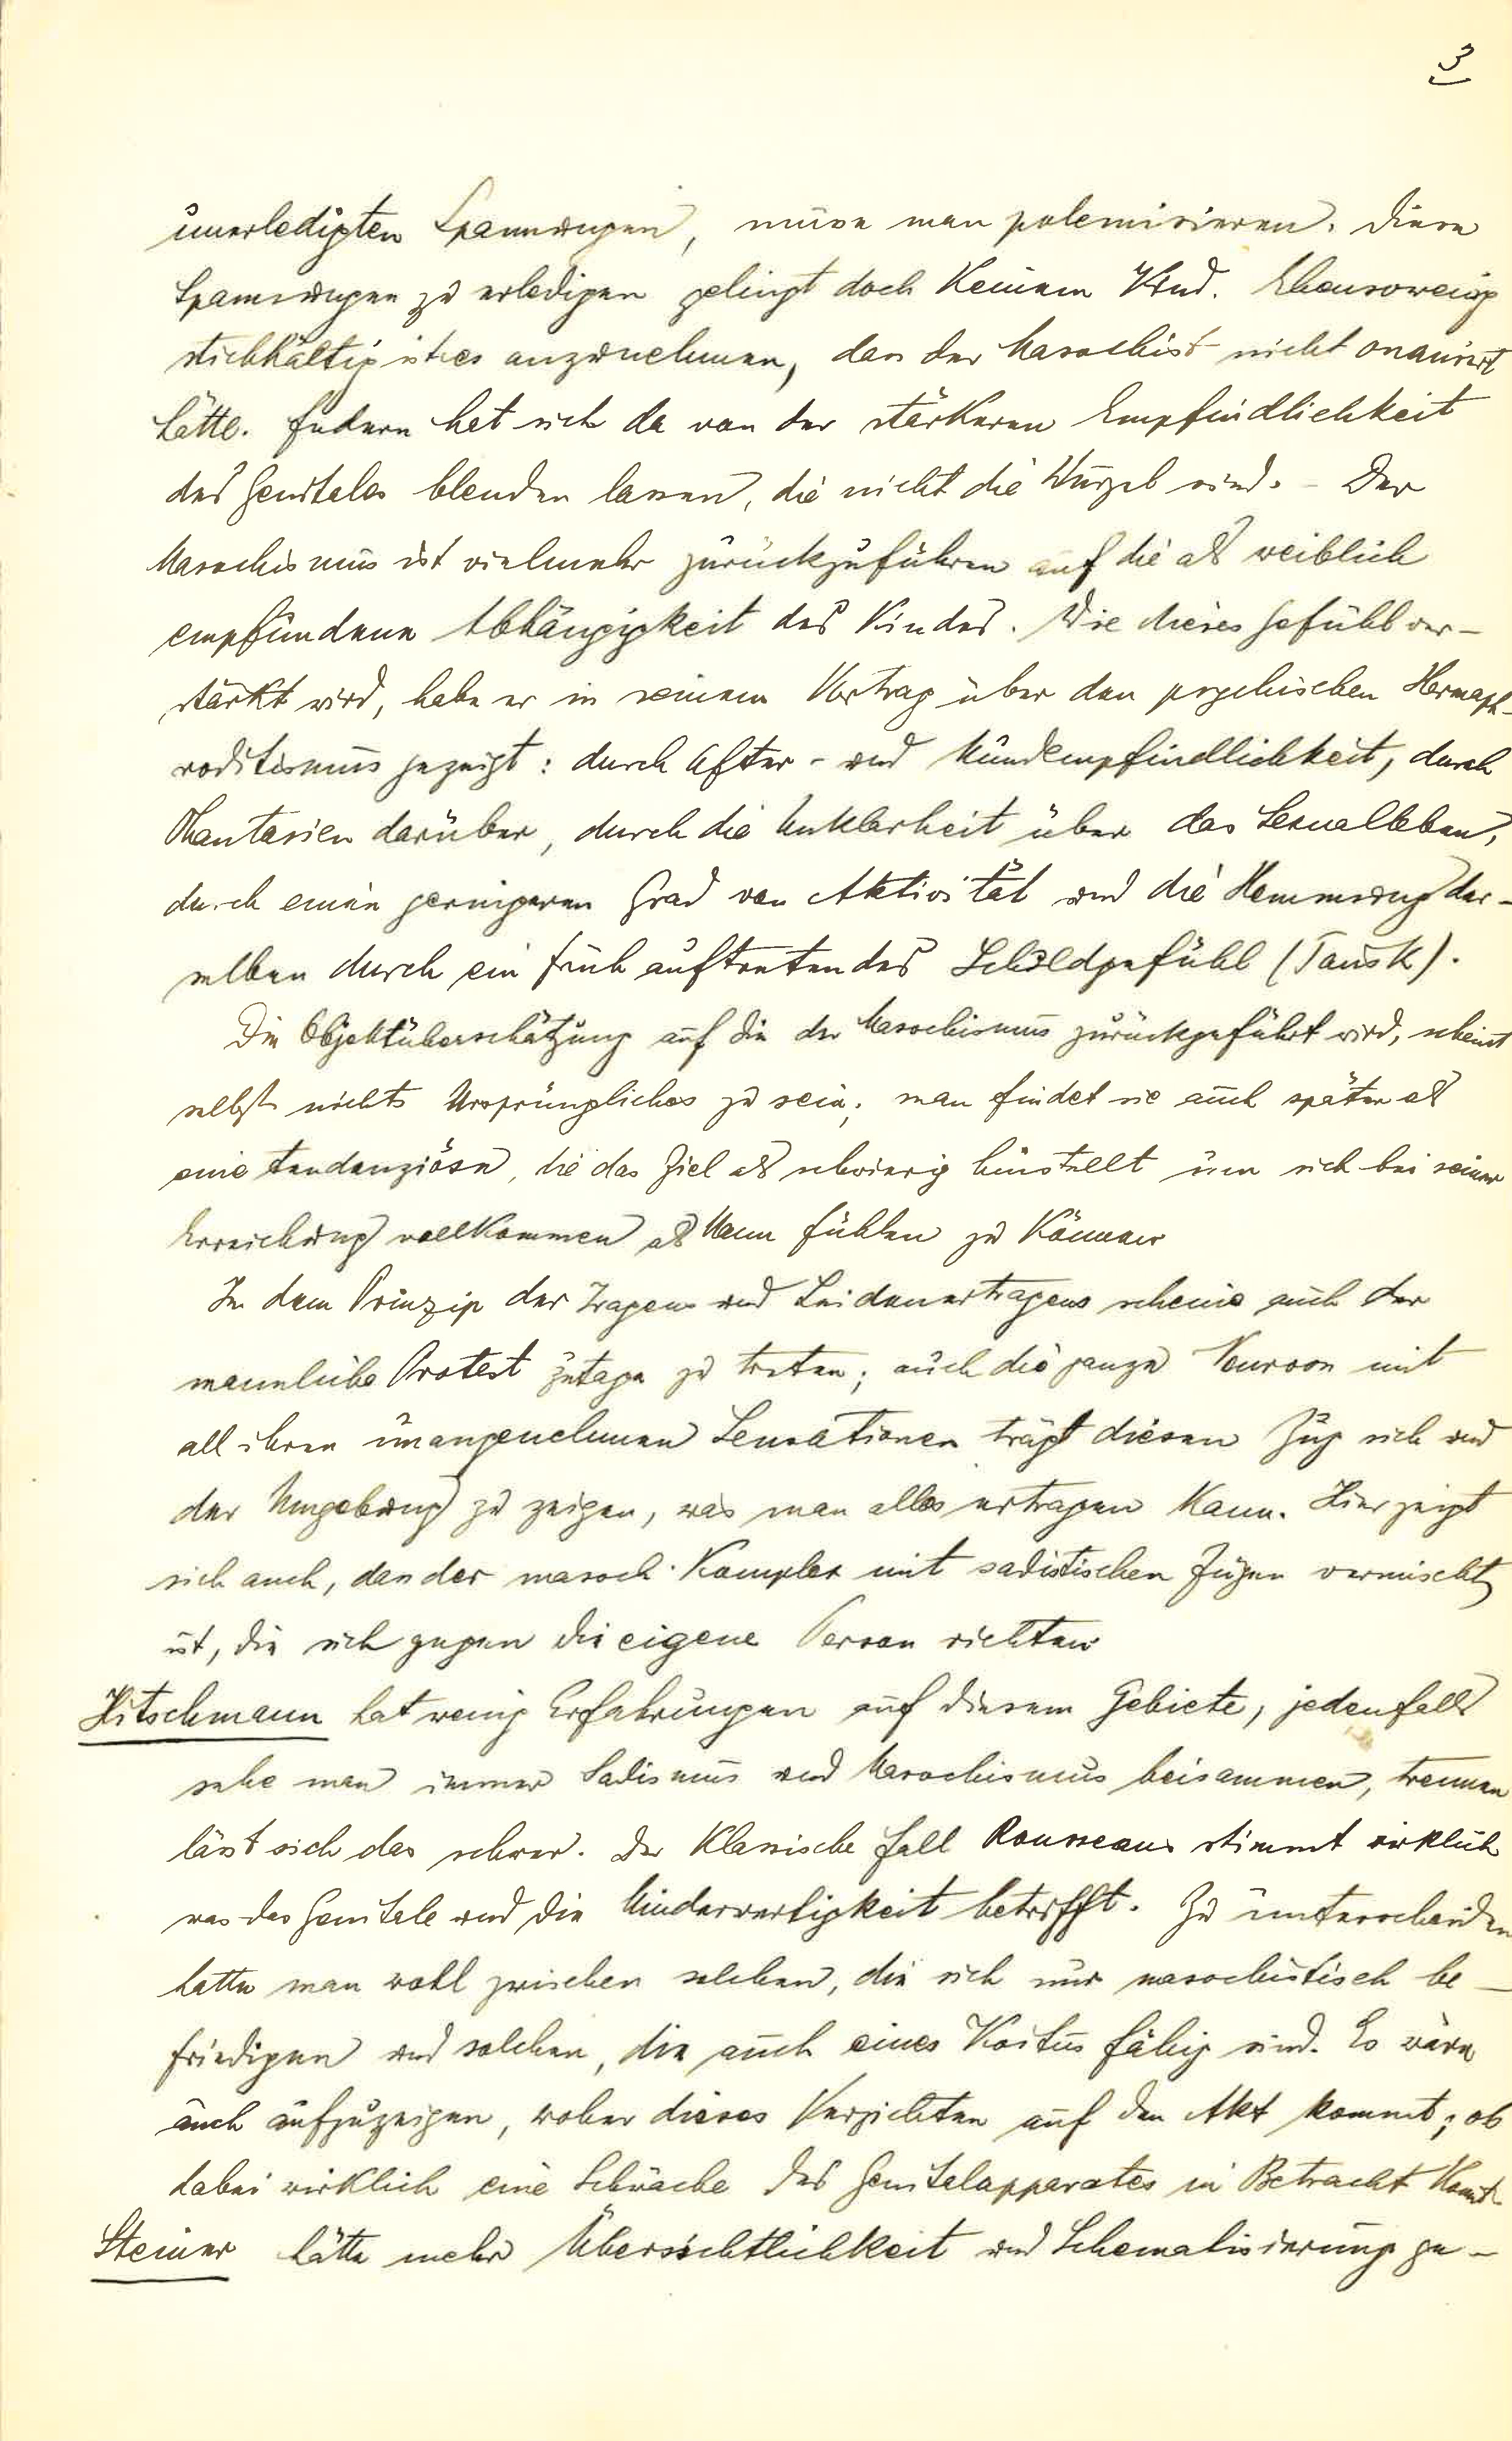 3
unerledigten Spannungen, müsse man polemisieren. Diese
Spannungen zu erledigen gelingt doch keinem Kind. Ebensowenig
stichhältig ist es anzunehmen, dass der Masochist nicht onaniert
hätte. Federn hat sich da von der stärkeren Empfindlichkeit
des Genitales blenden lassen, die nicht die Wurzel sind. – Der
Masochismus ist vielmehr zurückzuführen auf die als weiblich
empfundene Abhängigkeit des Kindes. Wie dieses Gefühl ver-
stärkt wird, habe er in seinem Vortrag über den psychischen Hermaph-
roditismus gezeigt: durch After- und Mundempfindlichkeit, durch
Phantasien darüber, durch die Unklarheit über das Sexualleben,
durch einen geringeren Grad von Aktivität und die Hemmung der-
selben durch ein früh auftretendes Schuldgefühl (Tausk).
Die Objektüberschätzung auf die der Masochismus zurückgeführt wird, scheint
selbst nichts Ursprüngliches zu sein; man findet sie auch später als
eine tendenziöse, die das Ziel als schwierig hinstellt um sich bei seiner
Erreichung vollkommen als Mann fühlen zu können
In dem Prinzip des Tragens und Leidenertragens scheine auch der
männliche Protest zutage zu treten; auch die ganze Neurose mit
all ihren unangenehmen Sensationen trägt diesen Zug sich und
der Umgebung zu zeigen, was man alles ertragen kann. Hier zeigt
sich auch, dass der masoch. Komplex mit sadistischen Zügen vermischt
ist, die sich gegen die eigene Person richten
Hitschmann hat wenig Erfahrungen auf diesem Gebiete, jedenfalls
sehe man immer Sadismus und Masochismus beisammen, trennen
lässt sich das schwer. Der klassische Fall Rousseaus stimmt wirklich
was das Genitale und die Minderwertigkeit betrifft. Zu unterscheiden
hätte man wohl zwischen solchen, die sich nur masochistisch be-
friedigen und solchen, die auch eines Koitus fähig sind. Es wäre
auch aufzuzeigen, woher dieses Verzichten auf den Akt kommt; ob
dabei wirklich eine Schwäche des Genitalapparates in Betracht kommt
Steiner hätte mehr Übersichtlichkeit und Schematisierung ge-